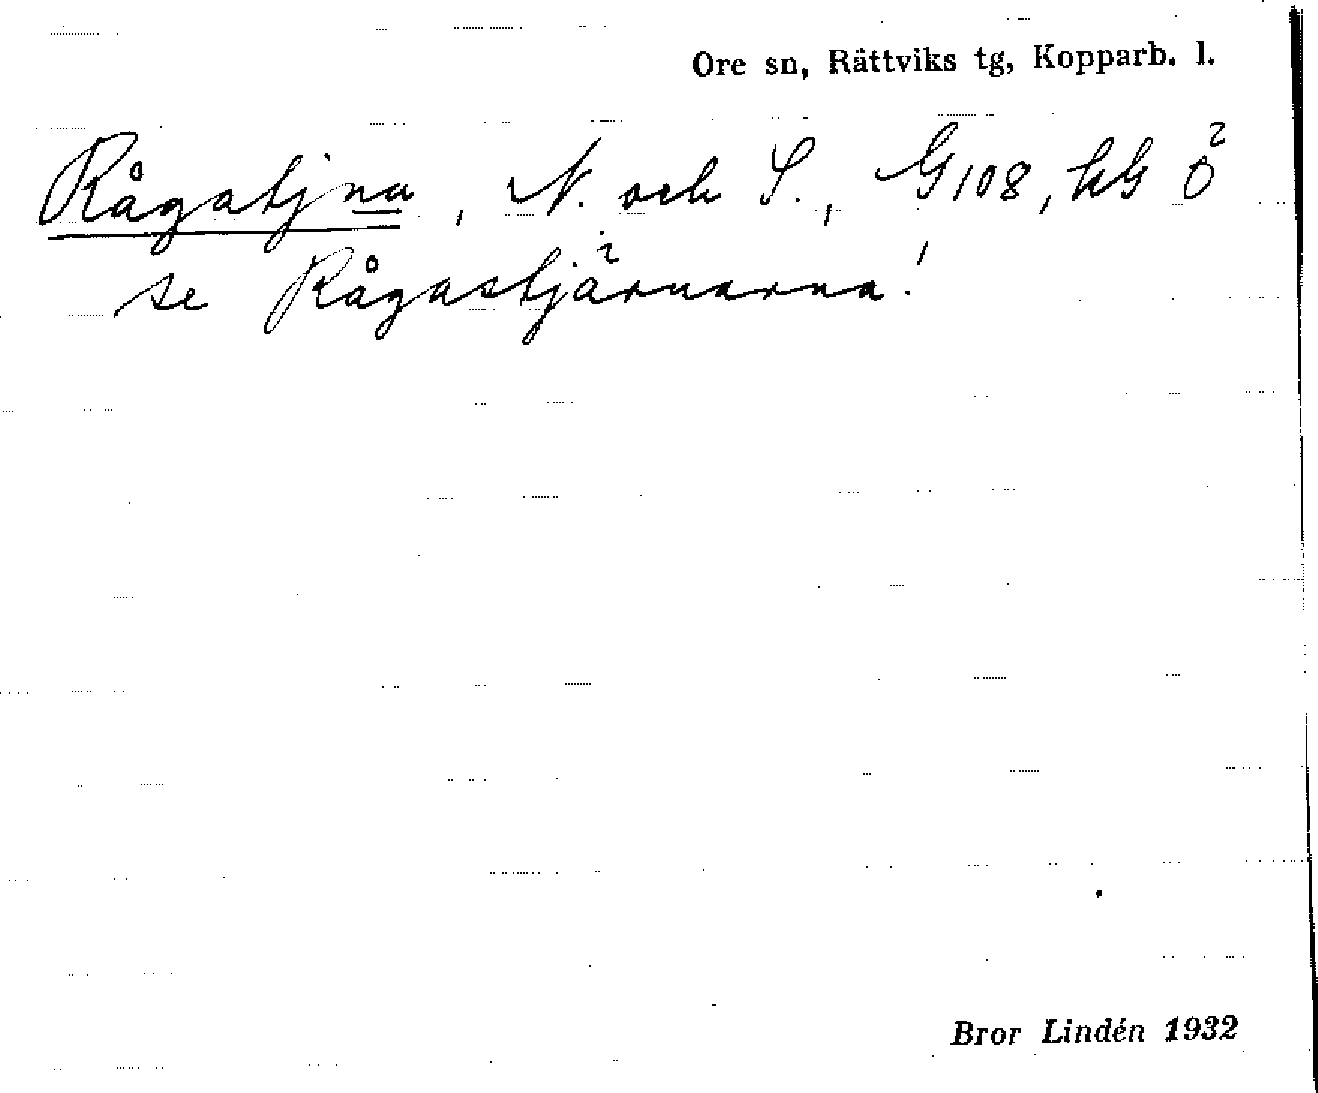 Ore sn, Rättviks tg, Kopparb. l.
Rågatjna, N. och S., G108, hG Ö
se Rågastjärnarna!
Bror Lindén 1932